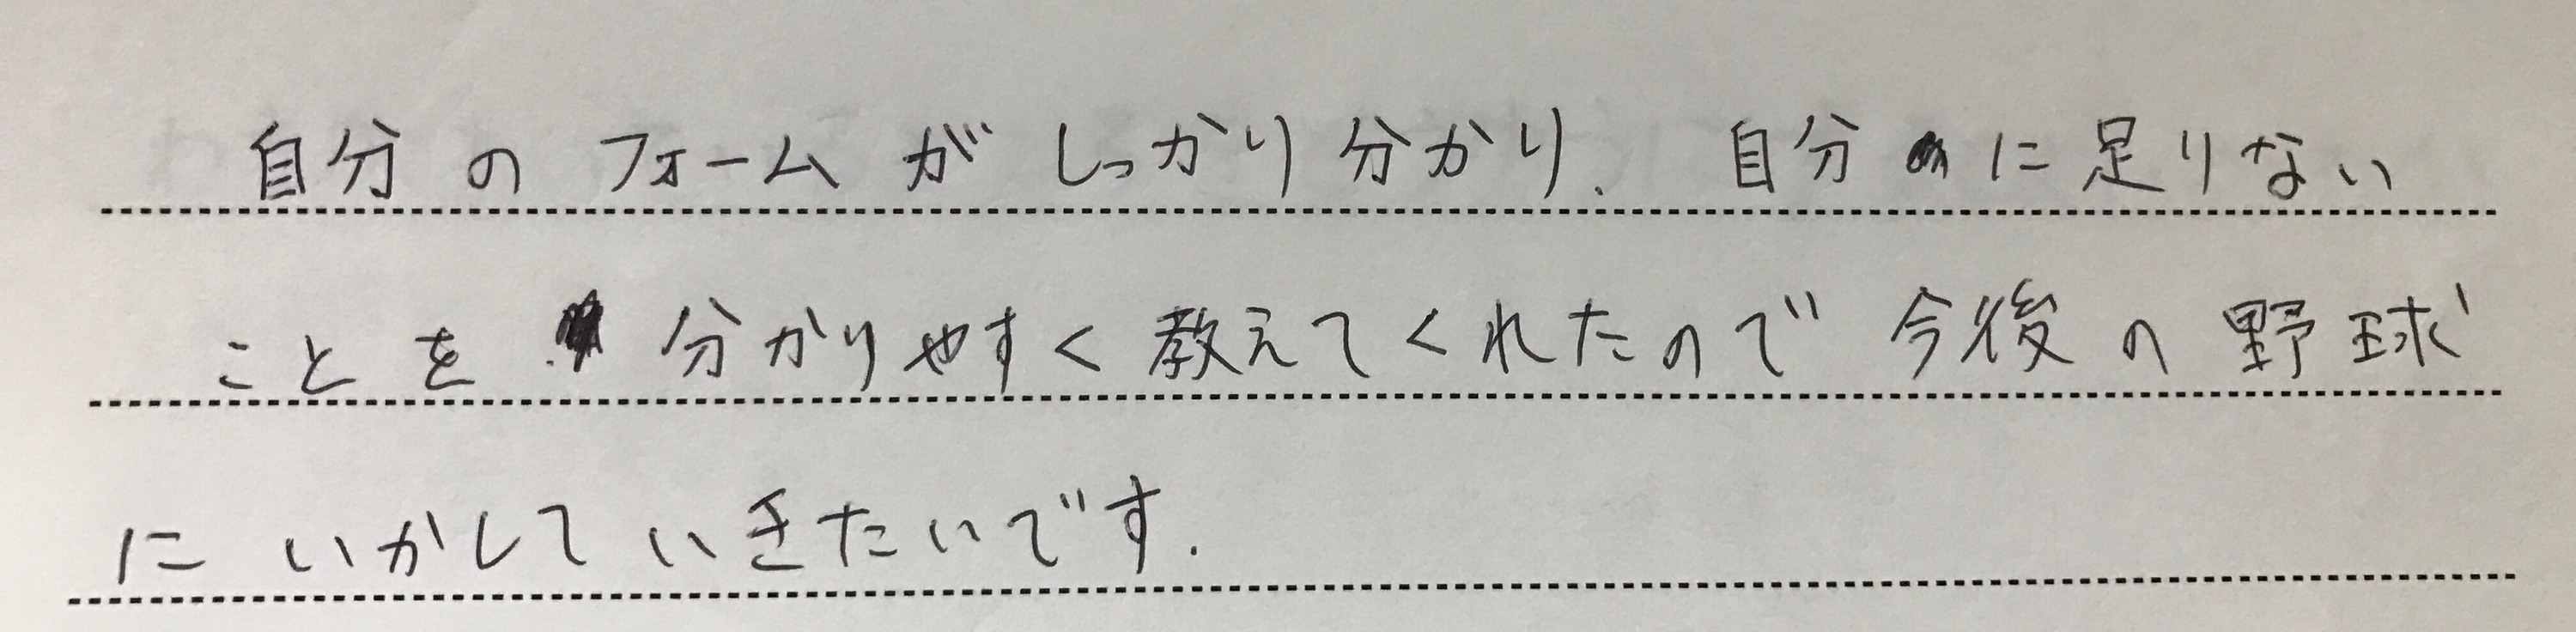 自分のフォームがしっかり分かり. 自分に足りない
ことを分かりやすく教えてくれたので今後の野球
にいかしていきたいです.